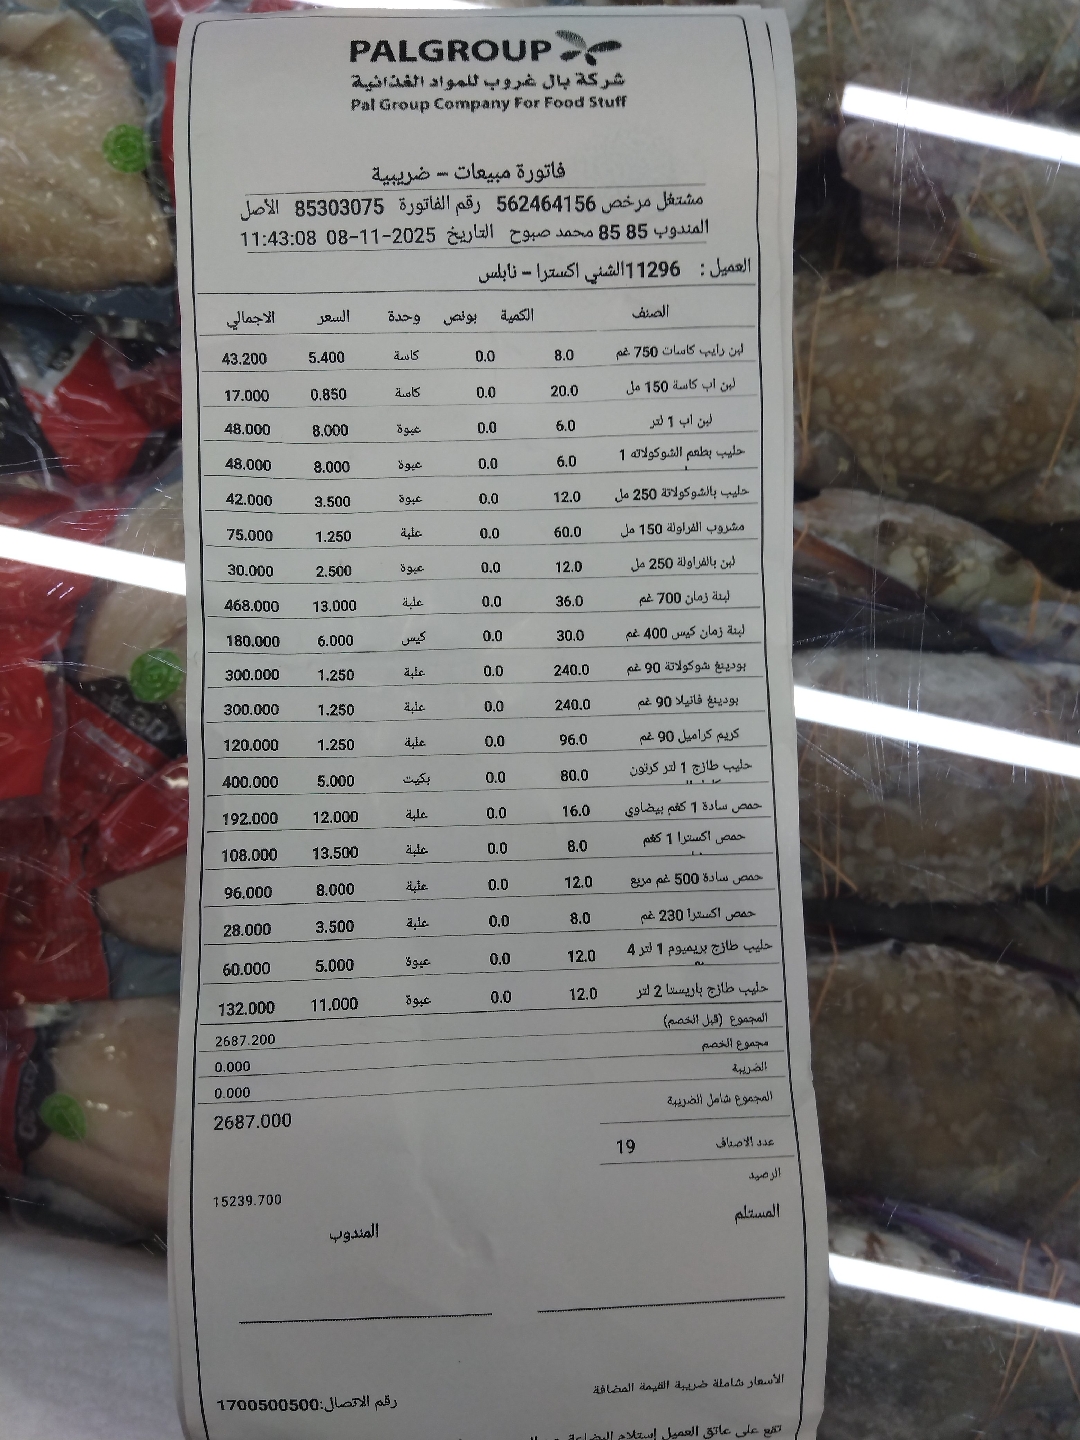 PALGROUP
شركة بال غروب للمواد الغذائية
Pal Group Company For Food Stuff
فاتورة مبيعات - ضريبية
مشتغل مرخص 562464156 رقم الفاتورة 85303075 الأصل
المندوب 85 85 محمد صبوح التاريخ 2025-11-08 11:43:08
العميل : 11296الشني اكسترا - نابلس
الصنف الكمية بونص وحدة السعر الاجمالي
لبن رايب كاسات 750 غم 8.0 0.0 كاسة 5.400 43.200
لبن اب كاسة 150 مل 20.0 0.0 كاسة 0.850 17.000
لبن اب 1 لتر 6.0 0.0 عبوة 8.000 48.000
حليب بطعم الشوكولاته 1 6.0 0.0 عبوة 8.000 48.000
حليب بالشوكولاتة 250 مل 12.0 0.0 عبوة 3.500 42.000
مشروب الفراولة 150 مل 60.0 0.0 علبة 1.250 75.000
لبن بالفراولة 250 مل 12.0 0.0 عبوة 2.500 30.000
لبنة زمان 700 غم 36.0 0.0 علبة 13.000 468.000
لبنة زمان كيس 400 غم 30.0 0.0 كيس 6.000 180.000
بودينغ شوكولاتة 90 غم 240.0 0.0 علبة 1.250 300.000
بودينغ فانيلا 90 غم 240.0 0.0 علبة 1.250 300.000
كريم كراميل 90 غم 96.0 0.0 علبة 1.250 120.000
حليب طازج 1 لتر كرتون 80.0 0.0 بكيت 5.000 400.000
حمص سادة 1 كغم بيضاوي 16.0 0.0 علبة 12.000 192.000
حمص اكسترا 1 كغم 8.0 0.0 علبة 13.500 108.000
حمص سادة 500 غم مربع 12.0 0.0 علبة 8.000 96.000
حمص اكسترا 230 غم 8.0 0.0 علبة 3.500 28.000
حليب طازج بريميوم 1 لتر 4 12.0 0.0 عبوة 5.000 60.000
حليب طازج باريستا 2 لتر 12.0 0.0 عبوة 11.000 132.000
المجموع (قبل الخصم) 2687.200
مجموع الخصم 0.000
الضريبة 0.000
المجموع شامل الضريبة 2687.000
عدد الاصناف 19
الرصيد 15239.700
المستلم المندوب
الأسعار شاملة ضريبة القيمة المضافة
رقم الاتصال:1700500500
تقع على عاتق العميل إستلام البضاعة